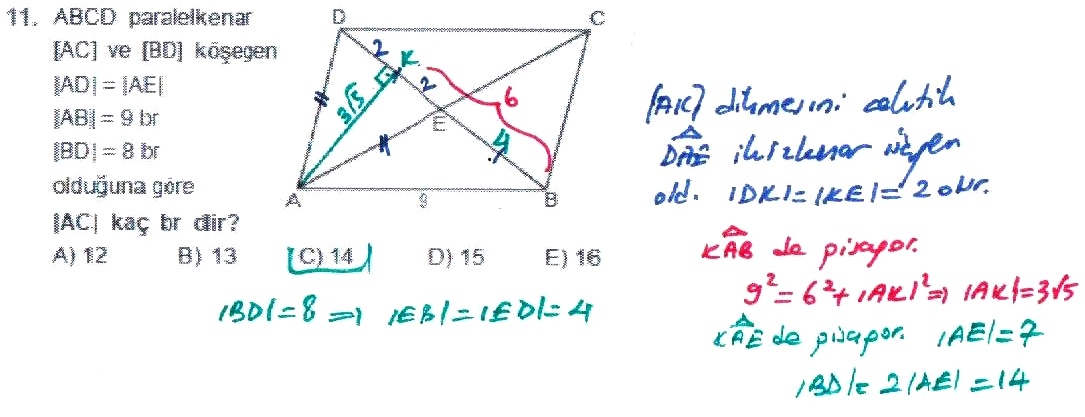 11. ABCD paralelkenar
[AC] ve [BD] köşegen
|AD| = |AE|
|AB| = 9 br
|BD| = 8 br
olduğuna göre
|AC| kaç br dir?
A) 12 B) 13 C) 14 D) 15 E) 16
D
C
2
K
2
6
3√5
E
4
A
9
B
|BD|=8 ⇒ |EB|=|ED|=4
[AK] dikmesini
DAE ikizkenar üçgen
old. |DK|=|KE|=2 olur.
KAB de pisagor.
9²=6²+|AK|²⇒|AK|=3√5
KAE de pisagor. |AE|=7
|BD|=2|AE|=14